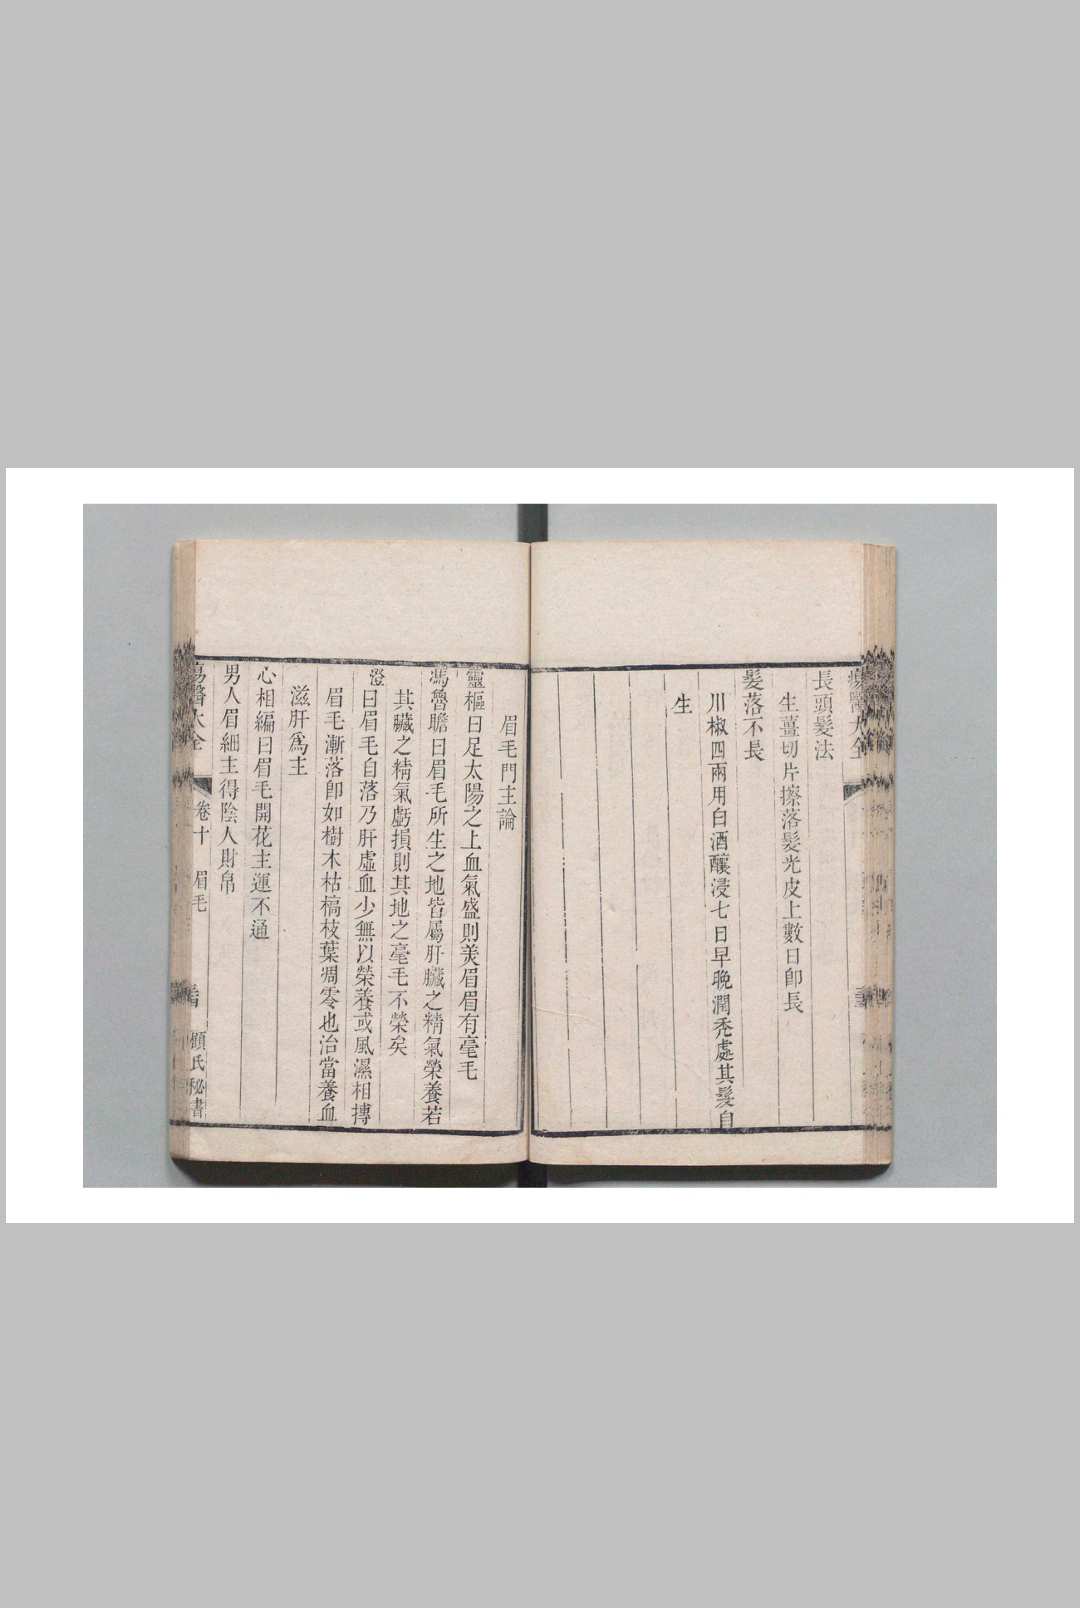 長頭髮法
生薑切片擦落髮光皮上數日卽長
髮落不長
川椒四兩用白酒釀浸七日早晚潤禿處其髮自
生
眉毛門主論
靈樞曰足太陽之上血氣盛則美眉眉有毫毛
馮魯瞻曰眉毛所生之地皆屬肝臟之精氣榮養若
其臟之精氣虧損則其地之毫毛不榮矣
澄曰眉毛自落乃肝虛血少無以榮養或風濕相搏
眉毛漸落卽如樹木枯槁枝葉凋零也治當養血
滋肝爲主
心相編曰眉毛開花主運不通
男人眉細主得陰人財帛
瘍醫大全 卷十 眉毛 顧氏秘書